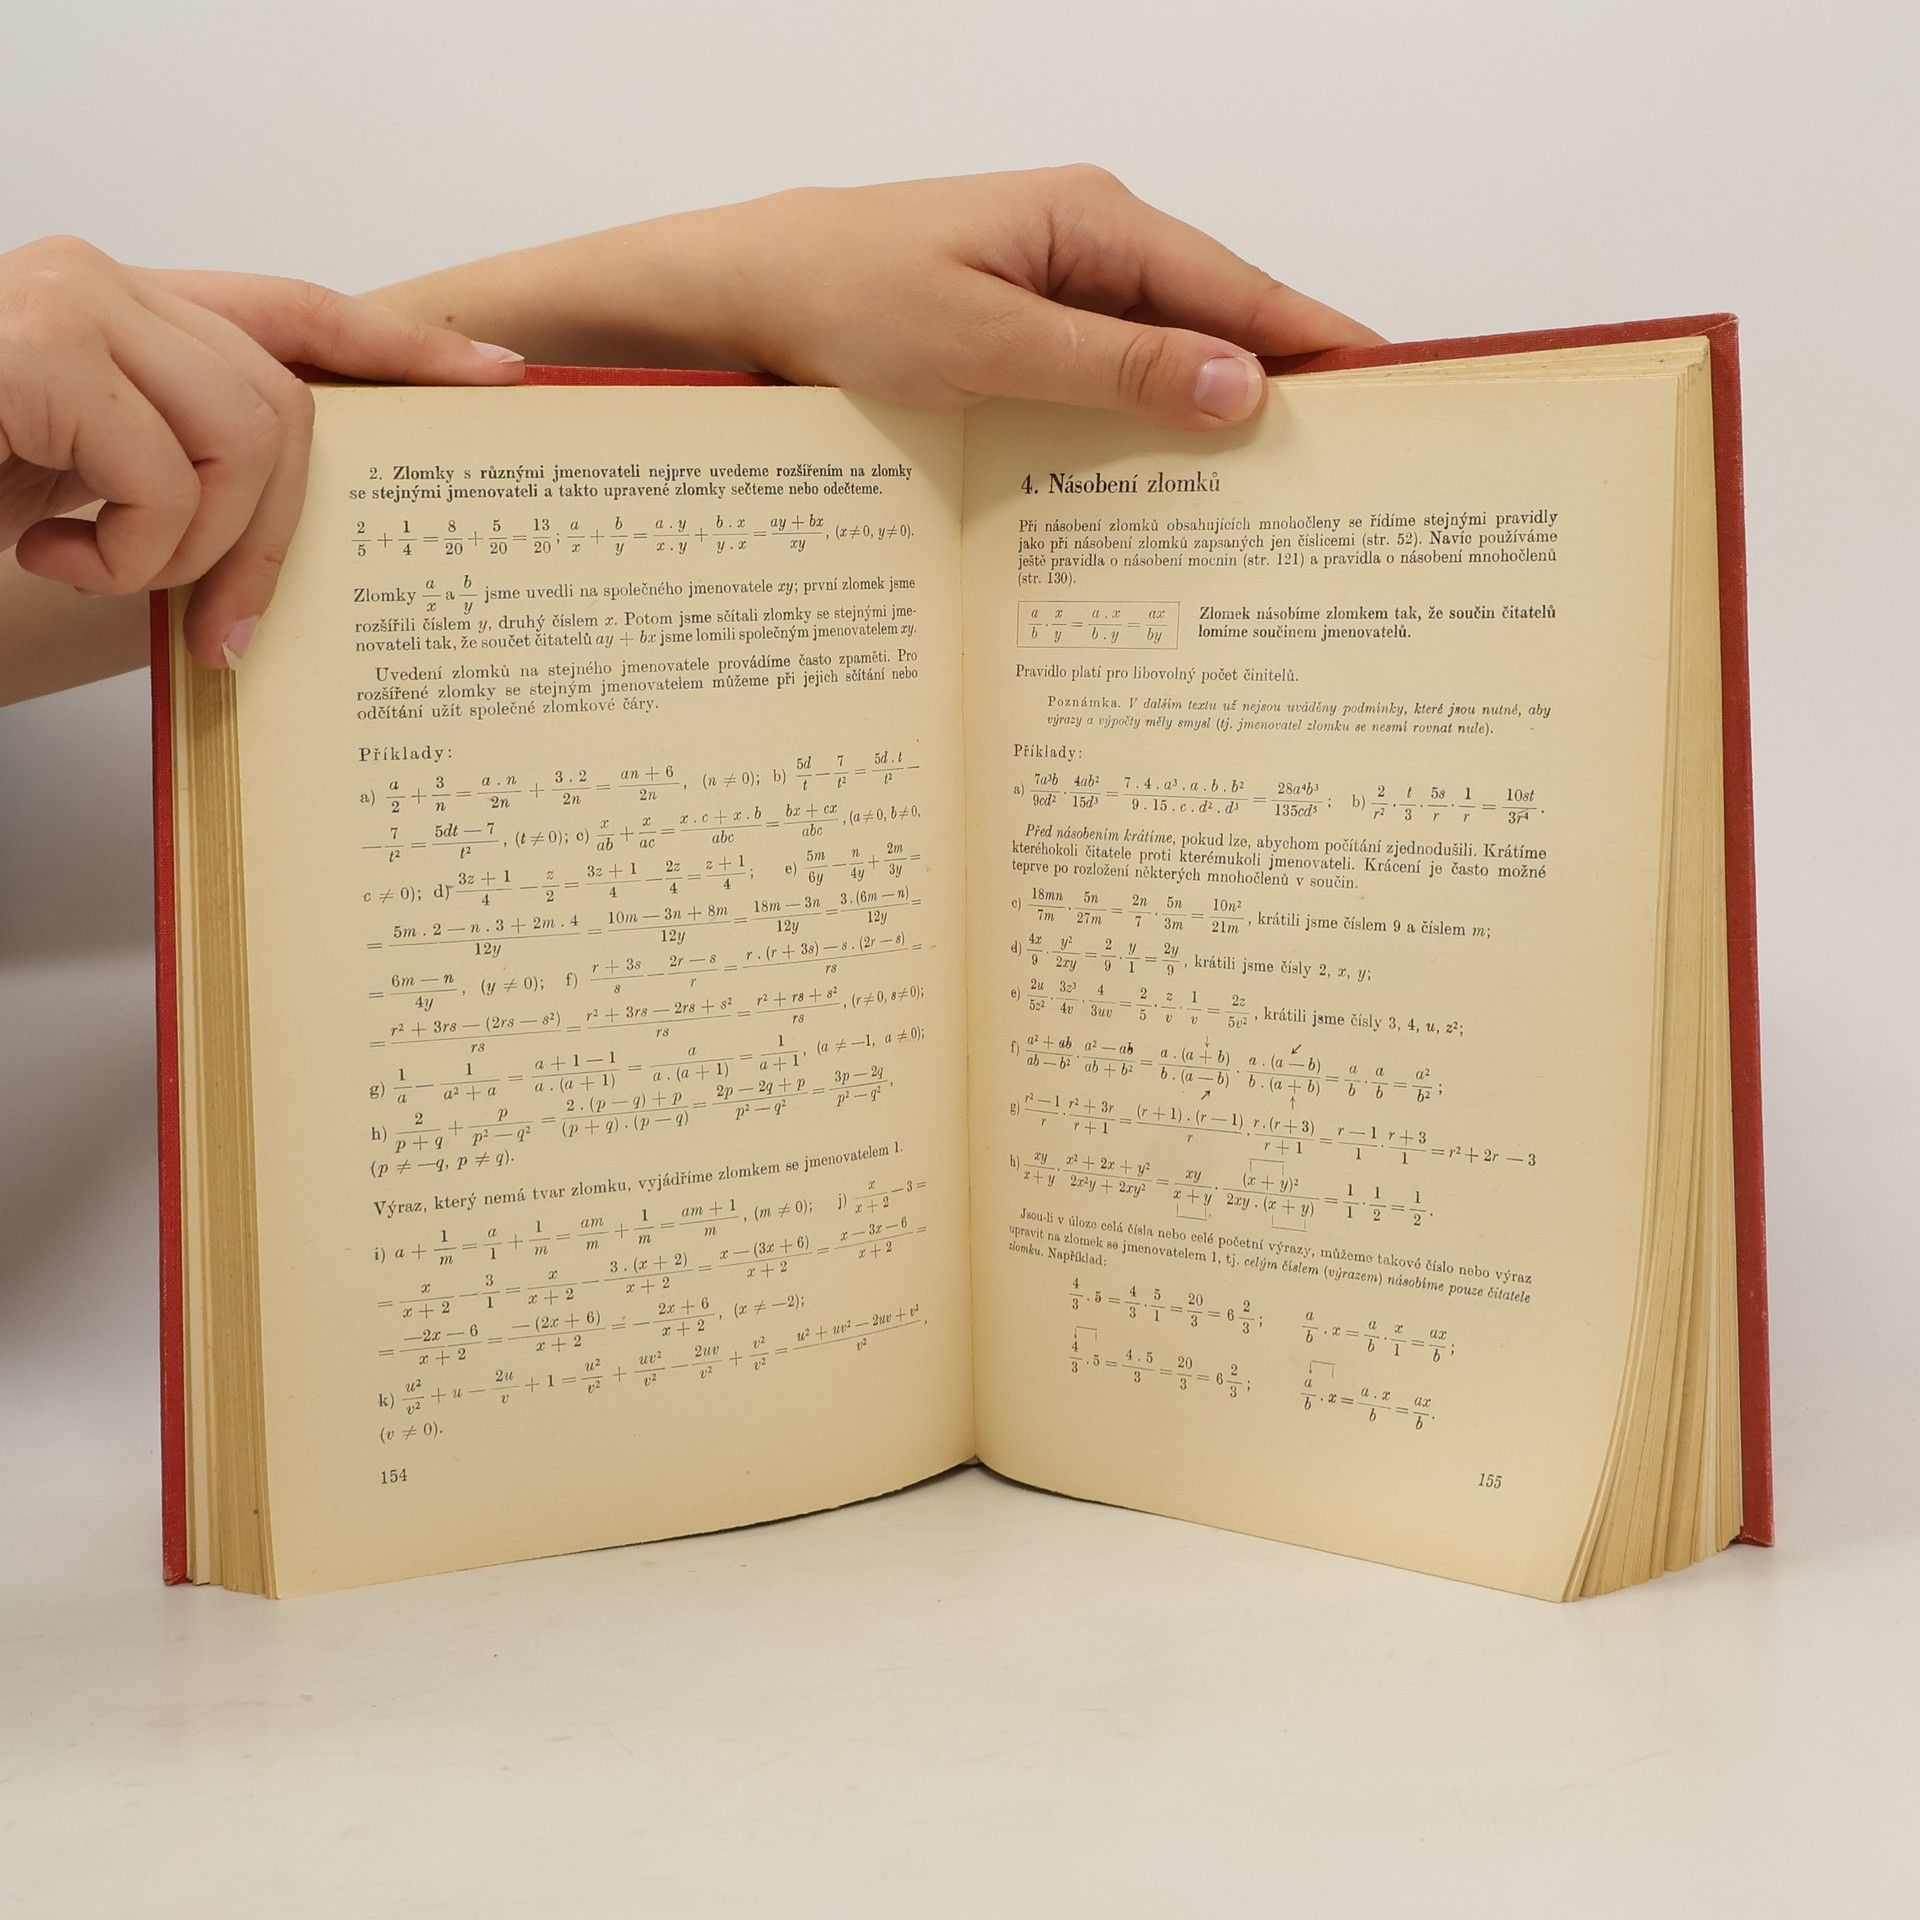 2. Zlomky s různými jmenovateli nejprve uvedeme rozšířením na zlomky
se stejnými jmenovateli a takto upravené zlomky sečteme nebo odečteme.
2/5 + 1/4 = 8/20 + 5/20 = 13/20; a/x + b/y = a . y/x . y + b . x/y . x = ay + bx/xy, (x≠0, y≠0).
Zlomky a/x a b/y jsme uvedli na společného jmenovatele xy; první zlomek jsme
rozšířili číslem y, druhý číslem x. Potom jsme sčítali zlomky se stejnými jme-
novateli tak, že součet čitatelů ay + bx jsme lomili společným jmenovatelem xy.
Uvedení zlomků na stejného jmenovatele provádíme často zpaměti. Pro
rozšířené zlomky se stejným jmenovatelem můžeme při jejich sčítání nebo
odčítání užít společné zlomkové čáry.
Příklady:
a) a/2 + 3/n = a . n/2n + 3 . 2/2n = an + 6/2n, (n ≠ 0); b) 5d/t − 7/t² = 5d . t/t² −
− 7/t² = 5dt − 7/t², (t ≠ 0); c) x/ab + x/ac = x . c + x . b/abc = bx + cx/abc, (a≠0, b≠0,
c ≠ 0); d) 3z + 1/4 − z/2 = 3z + 1/4 − 2z/4 = z + 1/4; e) 5m/6y − n/4y + 2m/3y =
= 5m . 2 − n . 3 + 2m . 4/12y = 10m − 3n + 8m/12y = 18m − 3n/12y = 3 . (6m − n)/12y =
= 6m − n/4y, (y ≠ 0); f) r + 3s/s − 2r − s/r = r . (r + 3s) − s . (2r − s)/rs =
= r² + 3rs − (2rs − s²)/rs = r² + 3rs − 2rs + s²/rs = r² + rs + s²/rs, (r≠0, s≠0);
g) 1/a − 1/a² + a = a + 1 − 1/a . (a + 1) = a/a . (a + 1) = 1/a + 1, (a ≠ −1, a ≠ 0);
h) 2/p + q + p/p² − q² = 2 . (p − q) + p/(p + q) . (p − q) = 2p − 2q + p/p² − q² = 3p − 2q/p² − q²,
(p ≠ −q, p ≠ q).
Výraz, který nemá tvar zlomku, vyjádříme zlomkem se jmenovatelem 1.
i) a + 1/m = a/1 + 1/m = am/m + 1/m = am + 1/m, (m ≠ 0); j) x/x + 2 − 3 =
= x/x + 2 − 3/1 = x/x + 2 − 3 . (x + 2)/x + 2 = x − (3x + 6)/x + 2 = x − 3x − 6/x + 2 =
= −2x − 6/x + 2 = −(2x + 6)/x + 2 = − 2x + 6/x + 2, (x ≠ −2);
k) u²/v² + u − 2u/v + 1 = u²/v² + uv²/v² − 2uv/v² + v²/v² = u² + uv² − 2uv + v²/v²,
(v ≠ 0).
154
4. Násobení zlomků
Při násobení zlomků obsahujících mnohočleny se řídíme stejnými pravidly
jako při násobení zlomků zapsaných jen číslicemi (str. 52). Navíc používáme
ještě pravidla o násobení mocnin (str. 121) a pravidla o násobení mnohočlenů
(str. 130).
a/b . x/y = a . x/b . y = ax/by
Zlomek násobíme zlomkem tak, že součin čitatelů
lomíme součinem jmenovatelů.
Pravidlo platí pro libovolný počet činitelů.
Poznámka. V dalším textu už nejsou uváděny podmínky, které jsou nutné, aby
výrazy a výpočty měly smysl (tj. jmenovatel zlomku se nesmí rovnat nule).
Příklady:
a) 7a³b/9cd² . 4ab²/15d³ = 7 . 4 . a³ . a . b . b²/9 . 15 . c . d² . d³ = 28a⁴b³/135cd⁵; b) 2/r² . t/3 . 5s/r . 1/r = 10st/3r⁴.
Před násobením krátíme, pokud lze, abychom počítání zjednodušili. Krátíme
kteréhokoli čitatele proti kterémukoli jmenovateli. Krácení je často možné
teprve po rozložení některých mnohočlenů v součin.
c) 18mn/7m . 5n/27m = 2n/7 . 5n/3m = 10n²/21m, krátili jsme číslem 9 a číslem m;
d) 4x/9 . y²/2xy = 2/9 . y/1 = 2y/9, krátili jsme čísly 2, x, y;
e) 2u/5z² . 3z³/4v . 4/3uv = 2/5 . z/v . 1/v = 2z/5v², krátili jsme čísly 3, 4, u, z²;
f) a² + ab/ab − b² . a² − ab/ab + b² = a . (a + b)/b . (a − b) . a . (a − b)/b . (a + b) = a/b . a/b = a²/b²;
g) r² − 1/r . r² + 3r/r + 1 = (r + 1) . (r − 1)/r . r . (r + 3)/r + 1 = r − 1/1 . r + 3/1 = r² + 2r − 3
h) xy/x + y . x² + 2x + y²/2x²y + 2xy² = xy/x + y . (x + y)²/2xy . (x + y) = 1/1 . 1/2 = 1/2.
Jsou-li v úloze celá čísla nebo celé početní výrazy, můžeme takové číslo nebo výraz
upravit na zlomek se jmenovatelem 1, tj. celým číslem (výrazem) násobíme pouze čitatele
zlomku. Například:
4/3 . 5 = 4/3 . 5/1 = 20/3 = 6 2/3; a/b . x = a/b . x/1 = ax/b;
4/3 . 5 = 4 . 5/3 = 20/3 = 6 2/3; a/b . x = a . x/b = ax/b.
155